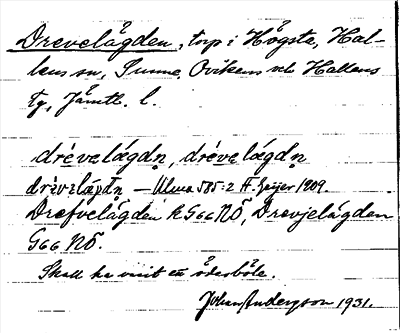 Drevelågden, torp i Högsta, Hal-
lens sn, Sunne, Ovikens och Hallens
tg, Jämtl. l.
drévelægdn̥, drévelægdn̥
drèvelægdn̥ – Ulma 585:2 H. Geijer 1909.
Drefvelägden k G66 NÖ, Drevjelägden
G66 NÖ.
Skall ha varit en ödesböle.
Johan Anderson 1931.